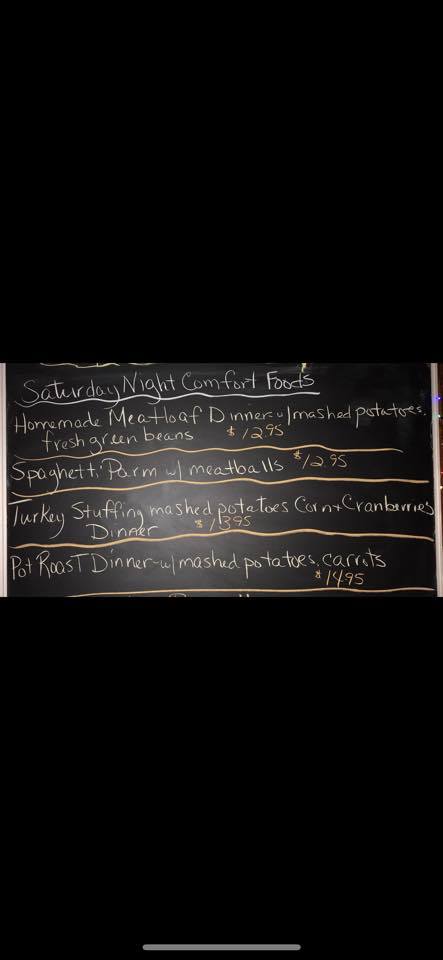 Saturday Night Comfort Foods
Homemade Meatloaf Dinner-w/mashed potatoes.
fresh green beans $12.95
Spaghetti Parm w/ meatballs $12.95
Turkey Stuffing mashed potatoes Corn + Cranberries
Dinner $1395
Pot Roast Dinner-w/mashed potatoes, carrots
$1495